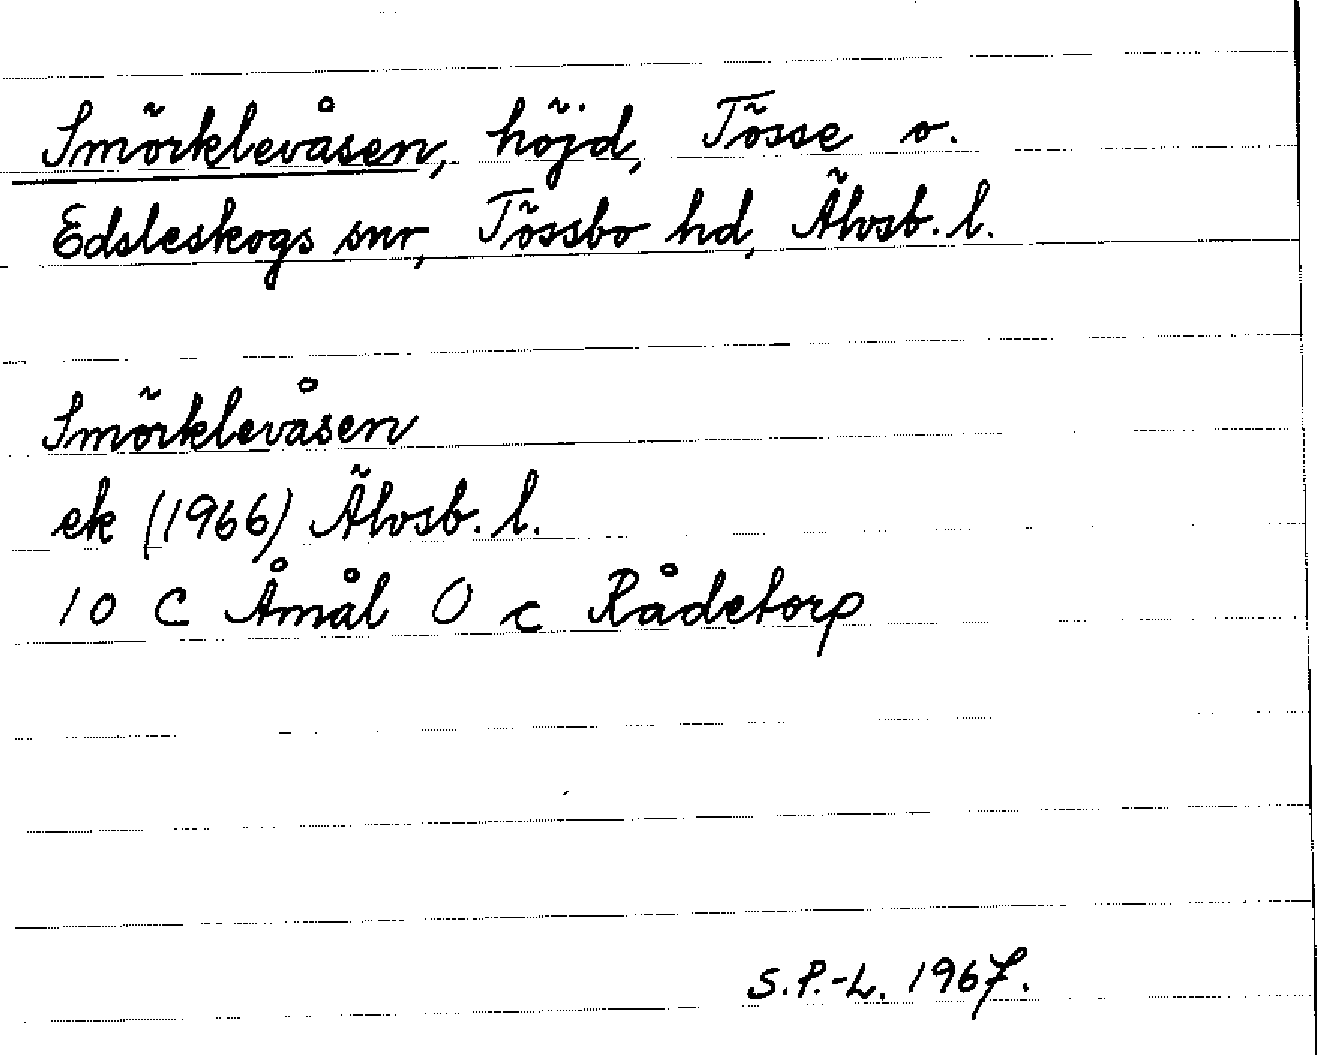 Smörklevåsen, höjd, Tösse o.
Edsleskogs snr, Tössbo hd, Älvsb. l.
Smörklevåsen
ek (1966) Älvsb. l.
10 C Åmål O c Rådetorp
S.P.-L. 1967.